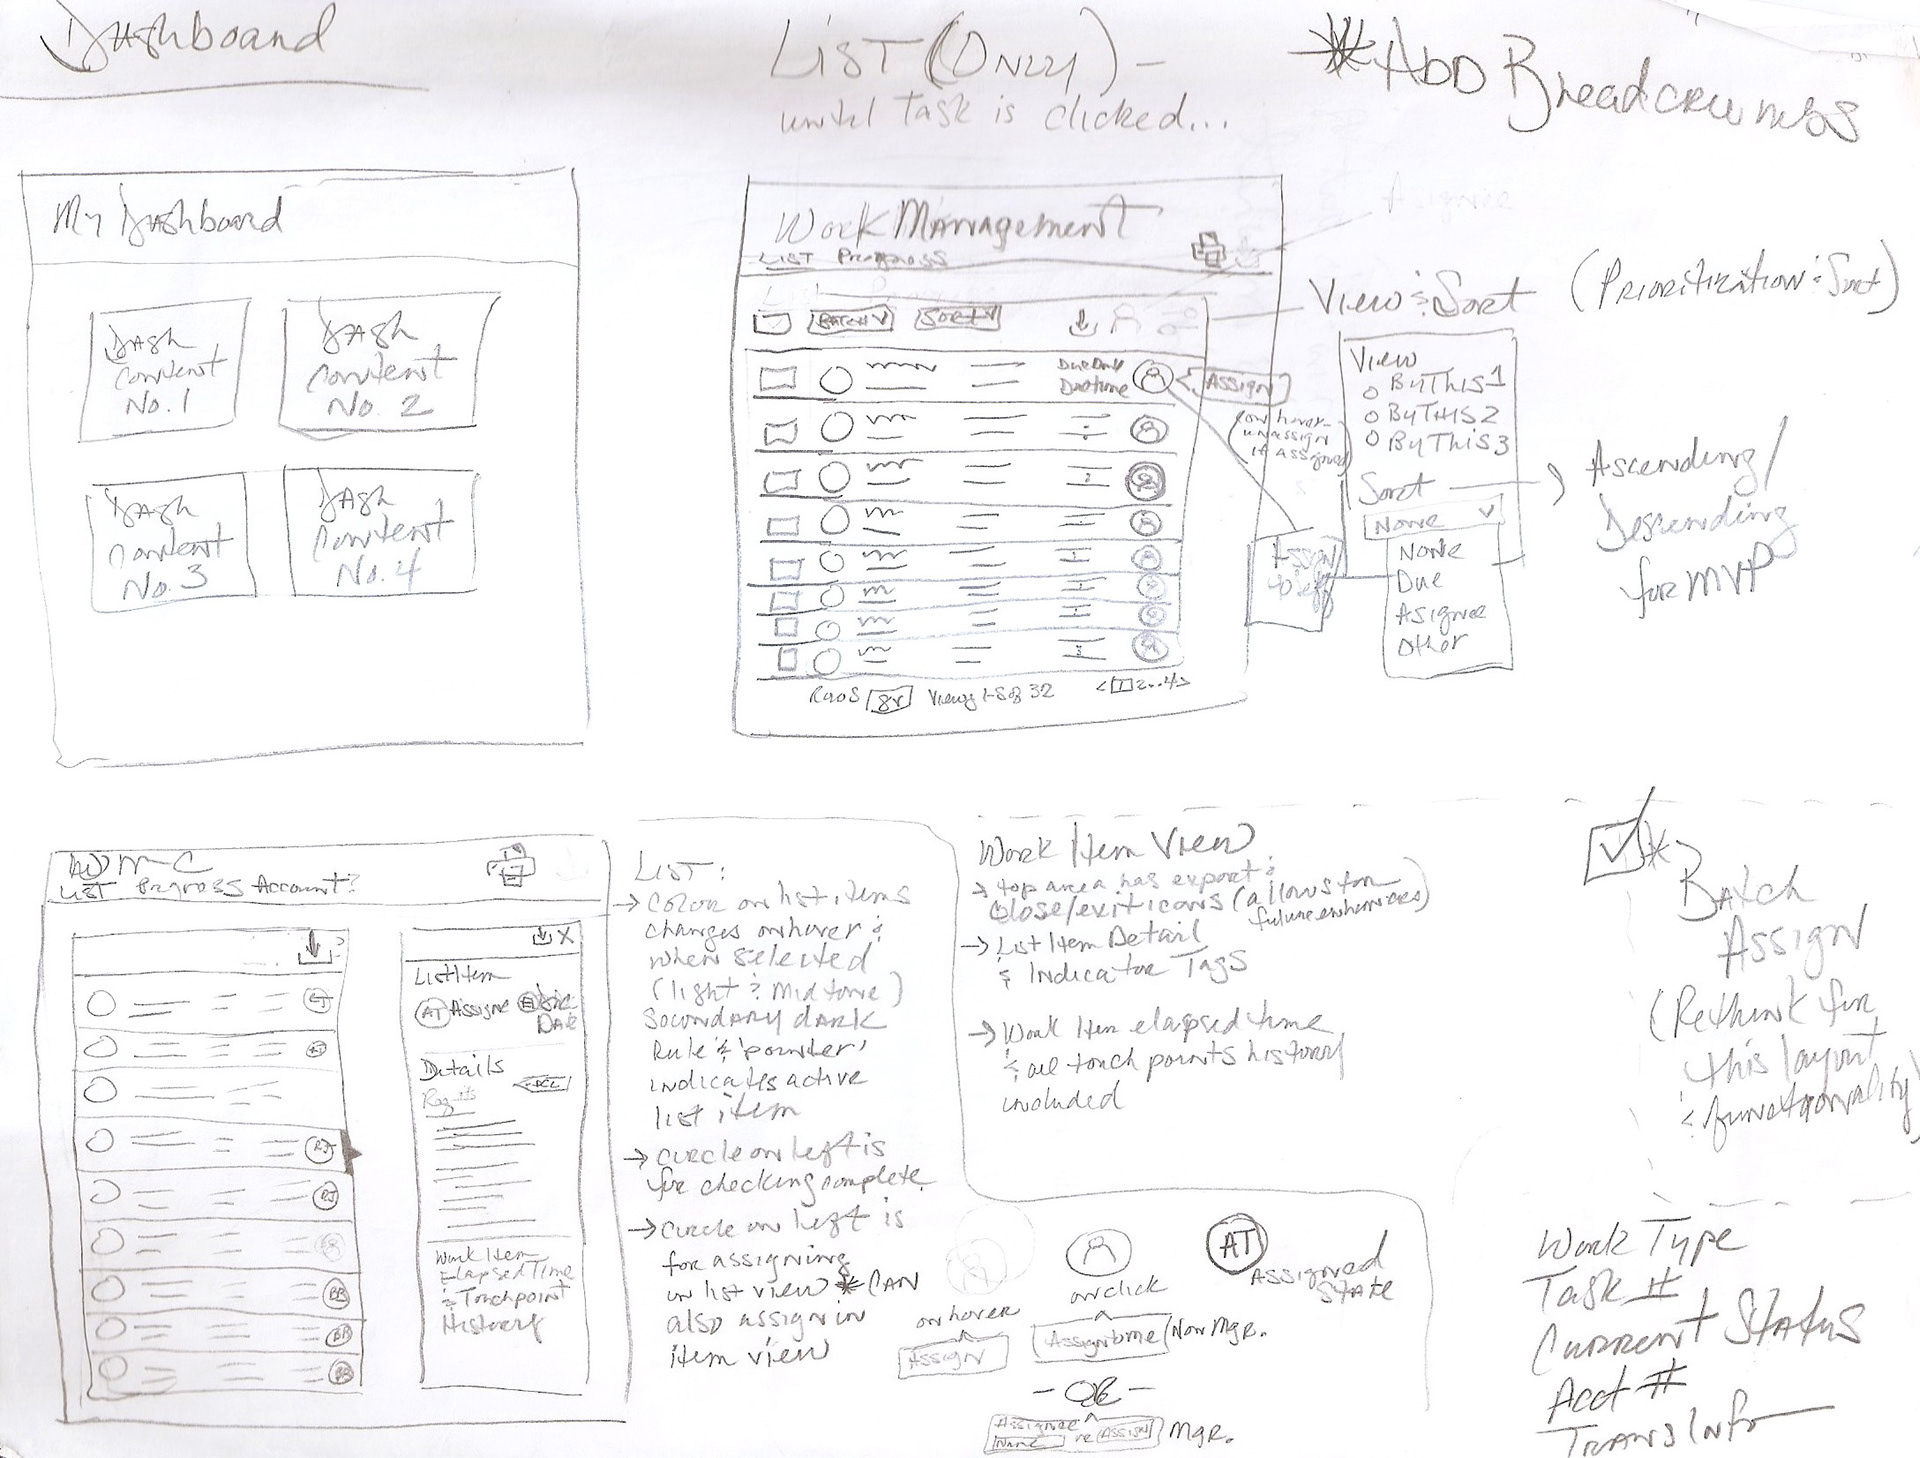 Dashboard
LIST (ONLY) -
until Task is clicked...
* ADD Breadcrumbs
My Dashboard
Dash
Content
No. 1
Dash
Content
No. 2
Dash
Content
No. 3
Dash
Content
No. 4
Work Management
LIST Progress
BATCH V SORT V
Due Date
Due time
ASSIGN
(on hover-
unassign
if assigned)
Assign
to self
Rows 8 V View 1-8 of 32 < 1 2..4 >
Asignee
View & Sort (Prioritization & Sort)
View
By This 1
By This 2
By This 3
Sort
None V
None
Due
Asignee
Other
Ascending/
Descending
for MVP
WM-C
LIST Progress Account?
RJ
RJ
BB
BB
BB
X
List Item
AT Assigne Due
Date
Details
Work Item
Elapsed Time
& Touchpoint
History
LIST:
→ Color on list items
changes on hover &
when selected
(light & Mid tone)
Secondary dark
Rule & 'pointer'
indicates active
list item
→ circle on left is
for checking complete
→ circle on left is
for assigning
in list view * CAN
also assign in
item view
Work Item View
→ top area has export &
close/exit icons (allows for
future enhances)
→ List Item Detail
& Indicator Tags
→ Work Item elapsed time
& all touch points history
included
on hover
Assign
on click
Assign to me (Non Mgr.
AT
Assigned
State
- OR -
Assignee
Name
ASSIGN
Mgr.
*
Batch
Assign
(Rethink for
this layout
& functionality)
Work Type
Task #
Current Status
Acct #
Trans Info